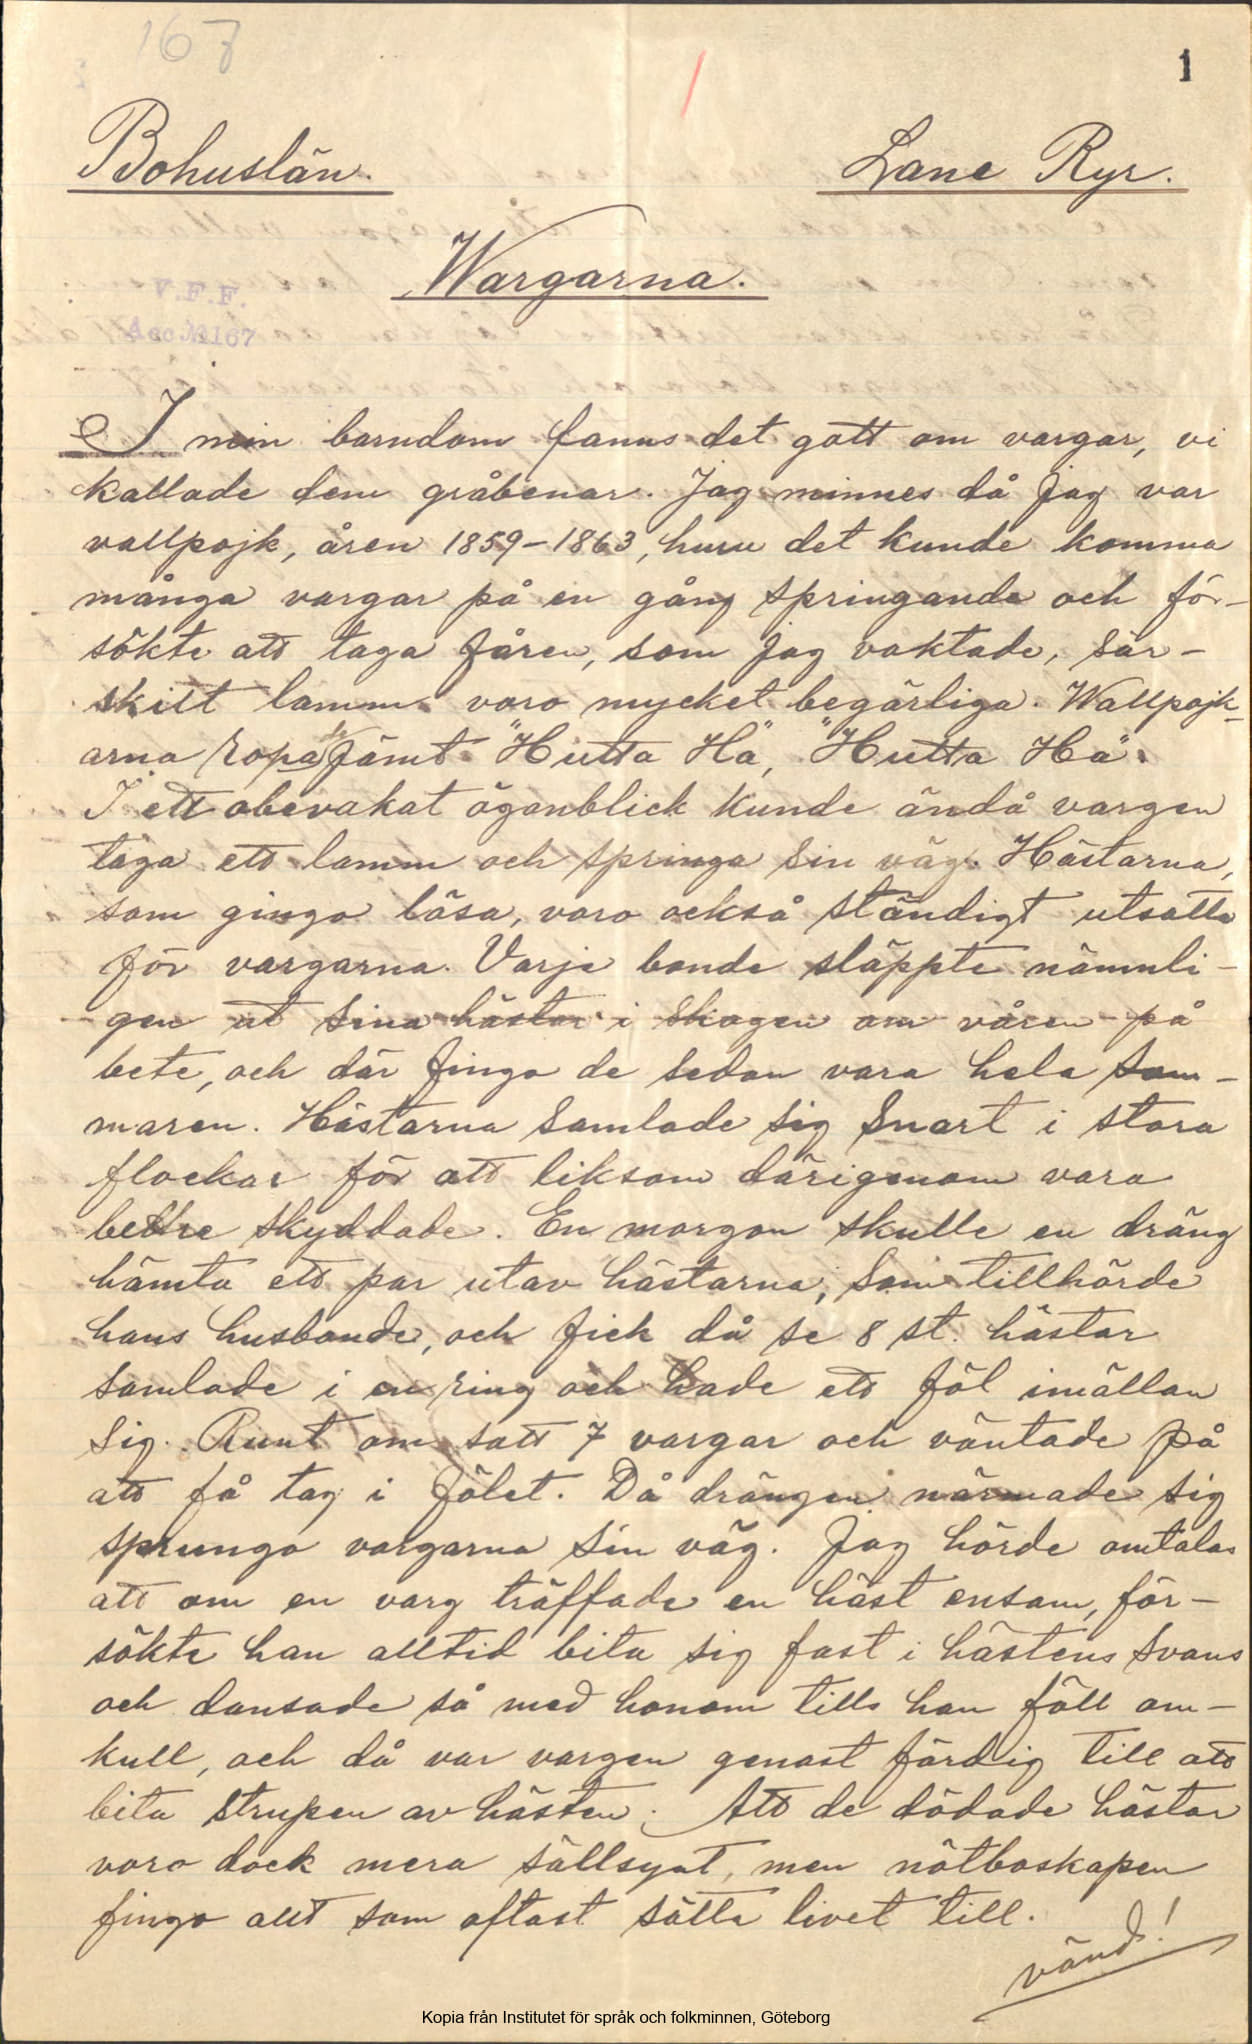 167
1
Bohuslän.
Lane Ryr.
Wargarna.
V.F.F.
Acc № 167
I min barndom fanns det gott om vargar, vi
kallade dem gråbenar. Jag minnes då jag var
vallpojk, åren 1859-1863, huru det kunde komma
många vargar på en gång springande och för-
sökte att taga fåren, som jag vaktade, sär-
skilt lamm voro mycket begärliga. Wallpojk-
arna ropade jämt "Hutta Hä", "Hutta Hä".
I ett obevakat ögonblick kunde ändå vargen
taga ett lamm och springa sin väg. Hästarna,
som gingo lösa, voro också ständigt utsatta
för vargarna. Varje bonde släppte nämnli-
gen ut sina hästar i skogen om våren på
bete, och där fingo de sedan vara hela som-
maren. Hästarna samlade sig snart i stora
flockar för att liksom därigenom vara
bettre skyddade. En morgon skulle en dräng
hämta ett par utav hästarna, som tillhörde
hans husbonde, och fick då se 8 st. hästar
samlade i en ring och hade ett föl imällan
sig. Runt om satt 7 vargar och väntade på
att få tag i fölet. Då drängen närmade sig
sprungo vargarna sin väg. Jag hörde omtalas
att om en varg träffade en häst ensam, för-
sökte han alltid bita sig fast i hästens svans
och dansade så med honom tills han föll om-
kull, och då var vargen genast färdig till att
bita strupen av hästen. Att de dödade hästar
voro dock mera sällsynt, men nötboskapen
fingo allt som oftast sätta livet till.
vänd!
Kopia från Institutet för språk och folkminnen, Göteborg